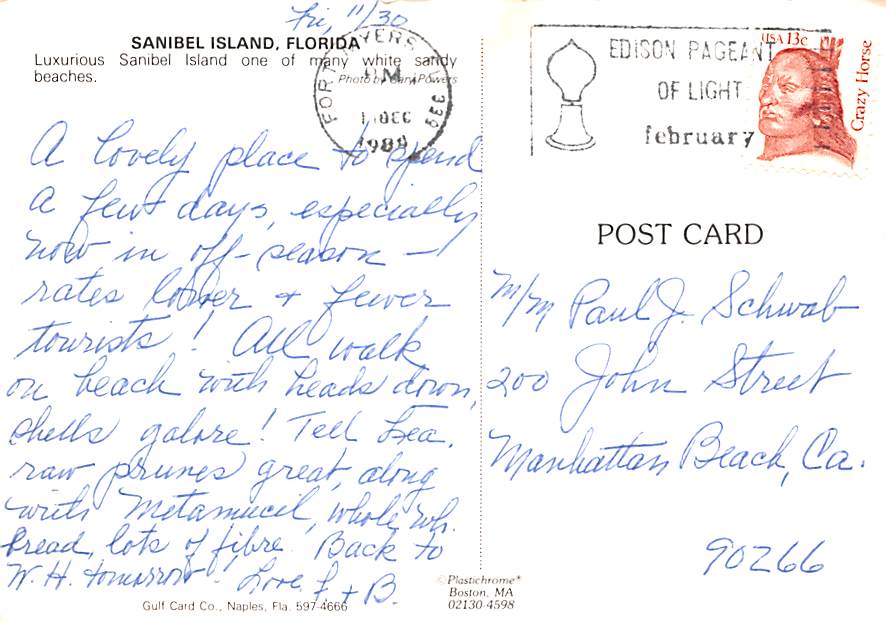 Fri, 11/30
SANIBEL ISLAND, FLORIDA
Luxurious Sanibel Island one of many white sandy
beaches.
Photo by Gary Powers
FORT MYERS, FL 339
PM
1 DEC
EDISON PAGEANT
OF LIGHT
february
USA 13c
Crazy Horse
A lovely place to spend
a few days, especially
now in off-season —
rates lower + fewer
tourists! All walk
on beach with heads down,
shells galore! Tell Lea,
raw prunes great, along
with Metamucil, whole wh.
bread, lots of fibre. Back to
W. H. tomorrow. Love, + B.
POST CARD
M/M Paul J. Schwab
200 John Street
Manhattan Beach, Ca.
90266
Gulf Card Co., Naples, Fla. 597-4666
©Plastichrome®
Boston, MA
02130-4598